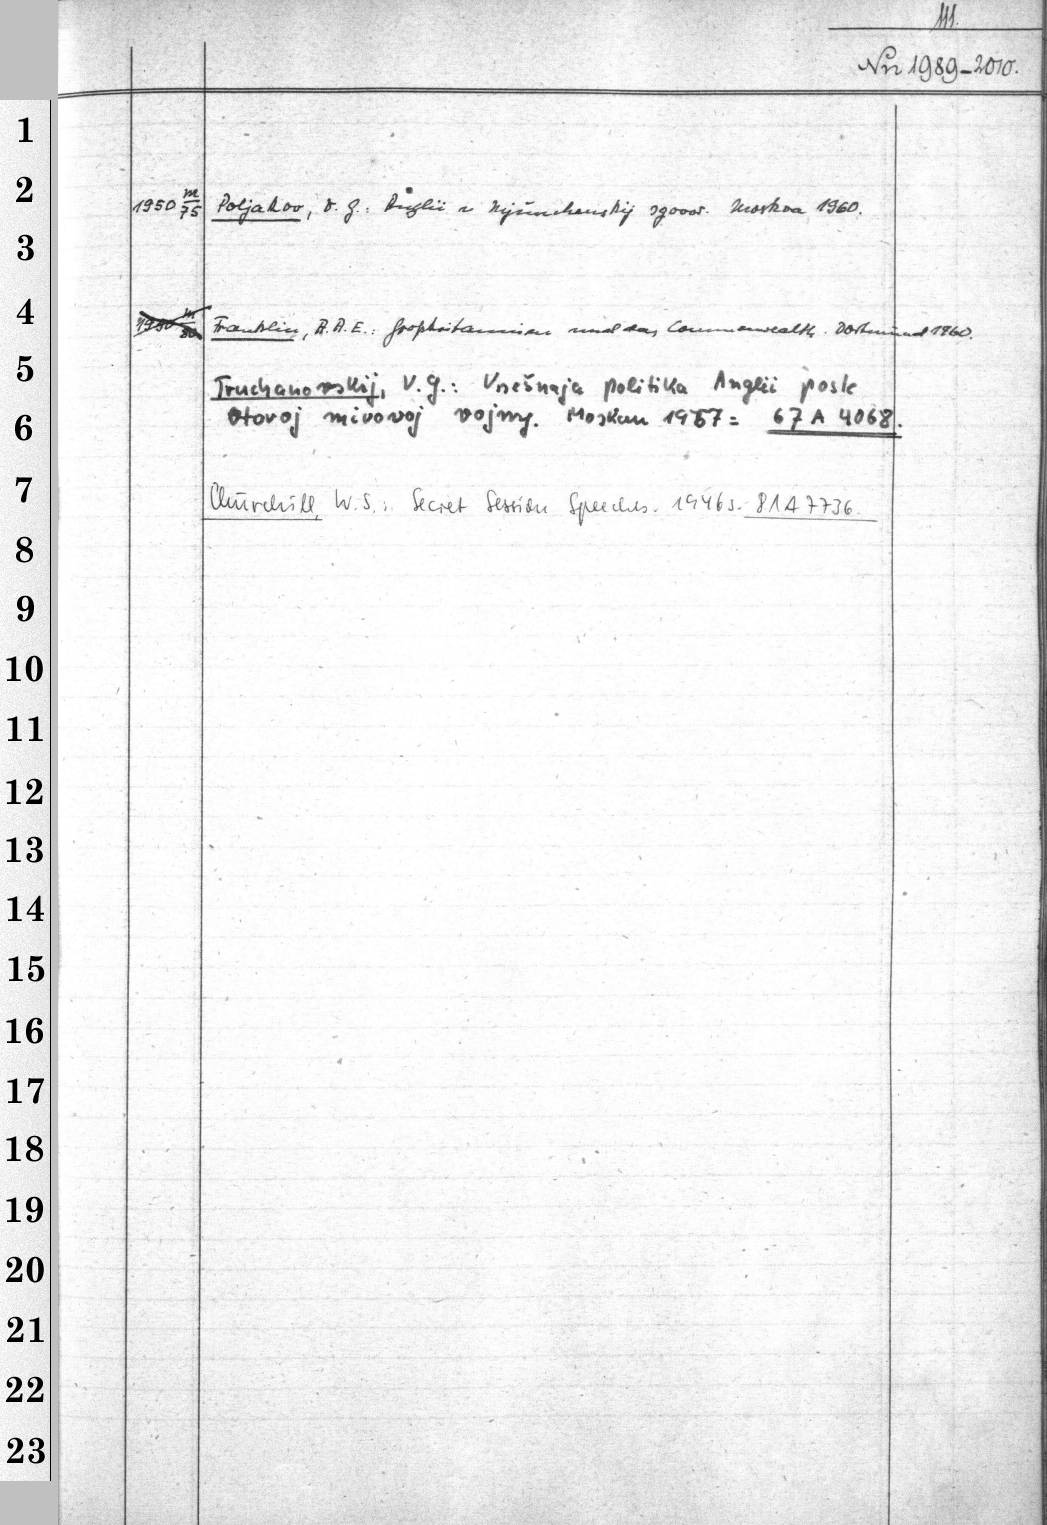 111.
Nn 1989-2010.
1
2
1950 m/75 Poljakov, V. G.: Anglii i Mjunchenskij sgovor. Moskva 1960.
3
4
1950 m/80 Franklin, A.A.E.: Großbritannien und das Commonwealth. Dortmund 1960.
5
Truchanovskij, V. G.: Vnešnaja politika Anglii posle
6
vtoroj mirovoj vojny. Moskau 1957 = 67 A 4068.
7
Churchill, W. S.: Secret Session Speeches. 1946 s. - 81 A 7736.
8
9
10
11
12
13
14
15
16
17
18
19
20
21
22
23